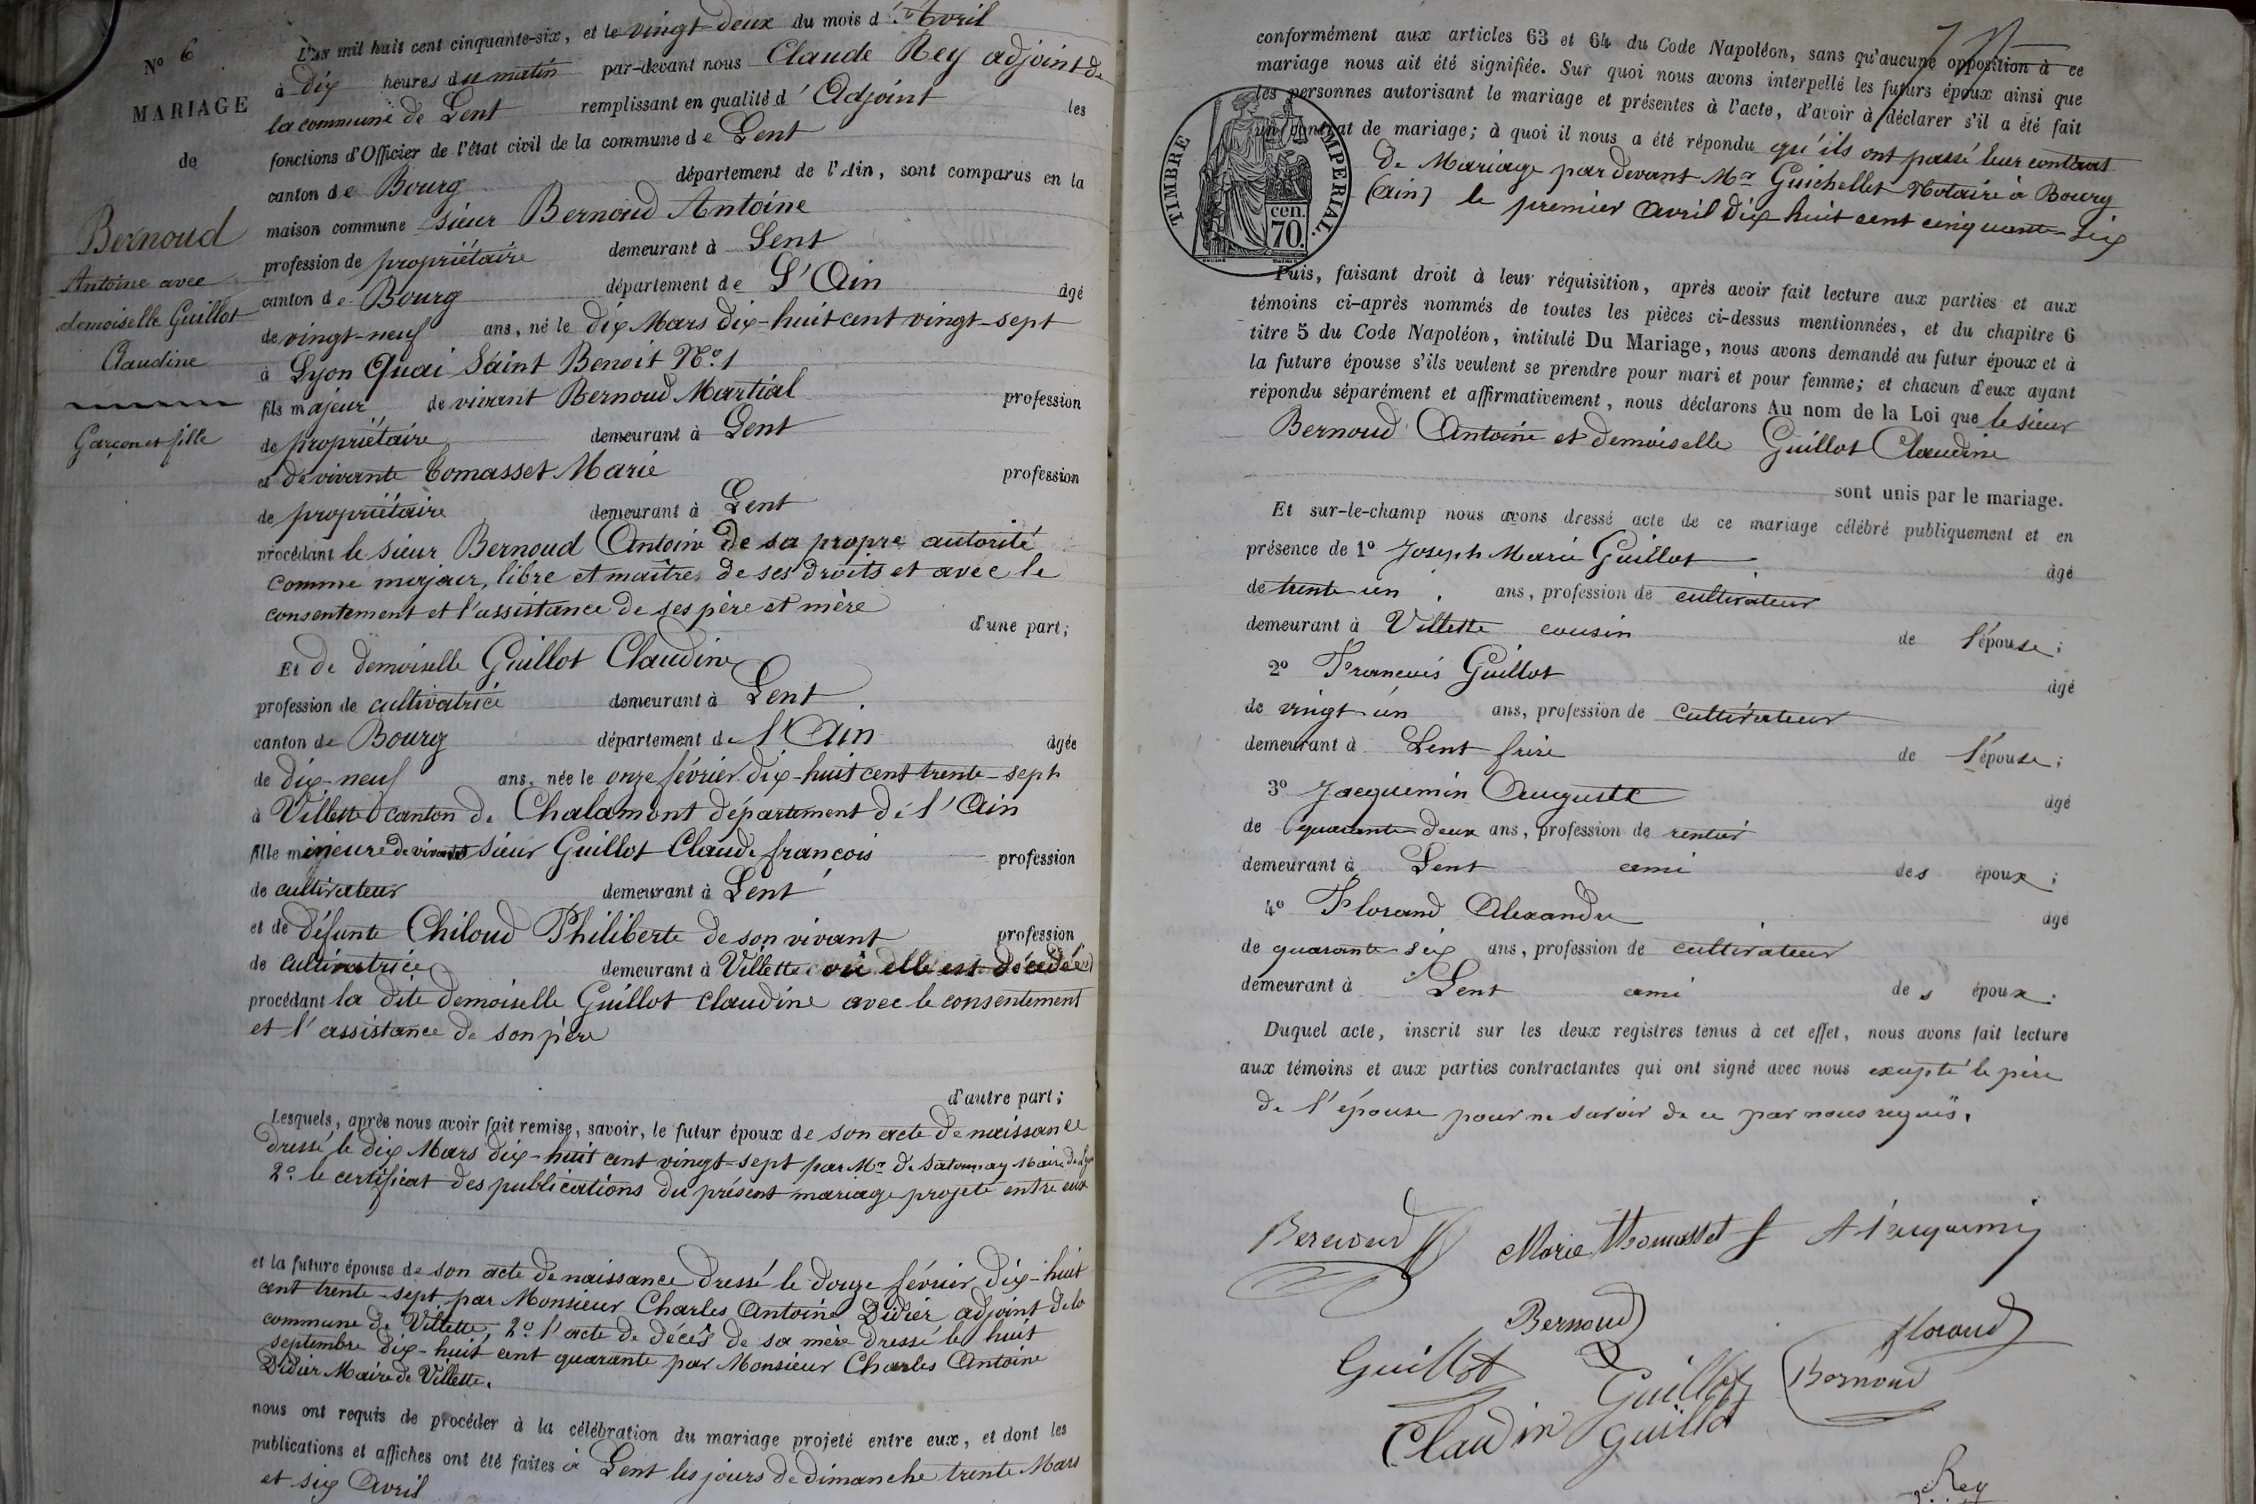 N° 6
MARIAGE
de
Bernoud
Antoine avec
demoiselle Guillot
Claudine
Garçon et fille
L'an mil huit cent cinquante-six, et le vingt-deux du mois d'Avril
à dix heures du matin par-devant nous Claude Rey adjoint de
la commune de Lent remplissant en qualité d'Adjoint les
fonctions d'Officier de l'état civil de la commune de Lent
canton de Bourg département de l'Ain, sont comparus en la
maison commune sieur Bernoud Antoine
profession de propriétaire demeurant à Lent
canton de Bourg département de L'Ain âgé
de vingt-neuf ans, né le dix Mars dix-huit cent vingt-sept
à Lyon Quai Saint Benoit N° 1
fils majeur de vivant Bernoud Martial profession
de propriétaire demeurant à Lent
et de vivante Tomasset Marie profession
de propriétaire demeurant à Lent
procédant le sieur Bernoud Antoine de sa propre autorité
comme majeur, libre et maître de ses droits et avec le
consentement et l'assistance de ses père et mère
d'une part;
Et de demoiselle Guillot Claudine
profession de cultivatrice demeurant à Lent.
canton de Bourg département de l'Ain âgée
de dix-neuf ans, née le onze février dix-huit cent trente-sept
à Villette canton de Chalamont département de l'Ain
fille mineure de vivant sieur Guillot Claude françois profession
de cultivateur demeurant à Lent
et de défunte Chiloud Philiberte de son vivant profession
de cultivatrice demeurant à Villette où elle est décédée
procédant la dite demoiselle Guillot claudine avec le consentement
et l'assistance de son père
d'autre part;
Lesquels, après nous avoir fait remise, savoir, le futur époux de son acte de naissance
dressé le dix Mars dix-huit cent vingt-sept par Mr de Maire de
2° le certificat des publications du présent mariage projeté entre eux
et la future épouse de son acte de naissance dressé le douze février dix-huit
cent trente-sept par Monsieur Charles Antoine Didier adjoint de la
commune de Villette, 2° l'acte de décès de sa mère dressé le huit
septembre dix-huit cent quarante par Monsieur Charles Antoine
Didier Maire de Villette.
nous ont requis de procéder à la célébration du mariage projeté entre eux, et dont les
publications et affiches ont été faites à Lent les jours de dimanche trente Mars
et six Avril
conformément aux articles 63 et 64 du Code Napoléon, sans qu'aucune opposition à ce
mariage nous ait été signifiée. Sur quoi nous avons interpellé les futurs époux ainsi que
les personnes autorisant le mariage et présentes à l'acte, d'avoir à déclarer s'il a été fait
un contrat de mariage; à quoi il nous a été répondu qu'ils ont passé leur contrat
de Mariage par devant Mr Guichellet Notaire à Bourg
(ain) le premier avril dix huit cent cinquante-six
TIMBRE IMPERIAL.
cen.
70.
Puis, faisant droit à leur réquisition, après avoir fait lecture aux parties et aux
témoins ci-après nommés de toutes les pièces ci-dessus mentionnées, et du chapitre 6
titre 5 du Code Napoléon, intitulé Du Mariage, nous avons demandé au futur époux et à
la future épouse s'ils veulent se prendre pour mari et pour femme; et chacun d'eux ayant
répondu séparément et affirmativement, nous déclarons Au nom de la Loi que le sieur
Bernoud Antoine et demoiselle Guillot Claudine
sont unis par le mariage.
Et sur-le-champ nous avons dressé acte de ce mariage célébré publiquement et en
présence de 1° Joseph Marie Guillot âgé
de trente un ans, profession de cultivateur
demeurant à Villette cousin de l'épouse;
2° Francois Guillot âgé
de vingt-un ans, profession de cultivateur
demeurant à Lent frère de l'épouse;
3° Jacquemin Auguste âgé
de quarante-deux ans, profession de rentier
demeurant à Lent ami des époux;
4° Florand Alexandre âgé
de quarante-six ans, profession de cultivateur
demeurant à Lent ami des époux.
Duquel acte, inscrit sur les deux registres tenus à cet effet, nous avons fait lecture
aux témoins et aux parties contractantes qui ont signé avec nous excepté le père
de l'épouse pour ne savoir de ce par nous requis.
Bernoud Marie Thomasset A Jacquemin
Bernoud florand
Guillot Guillot Bernoud
Claudin Guillot
Rey